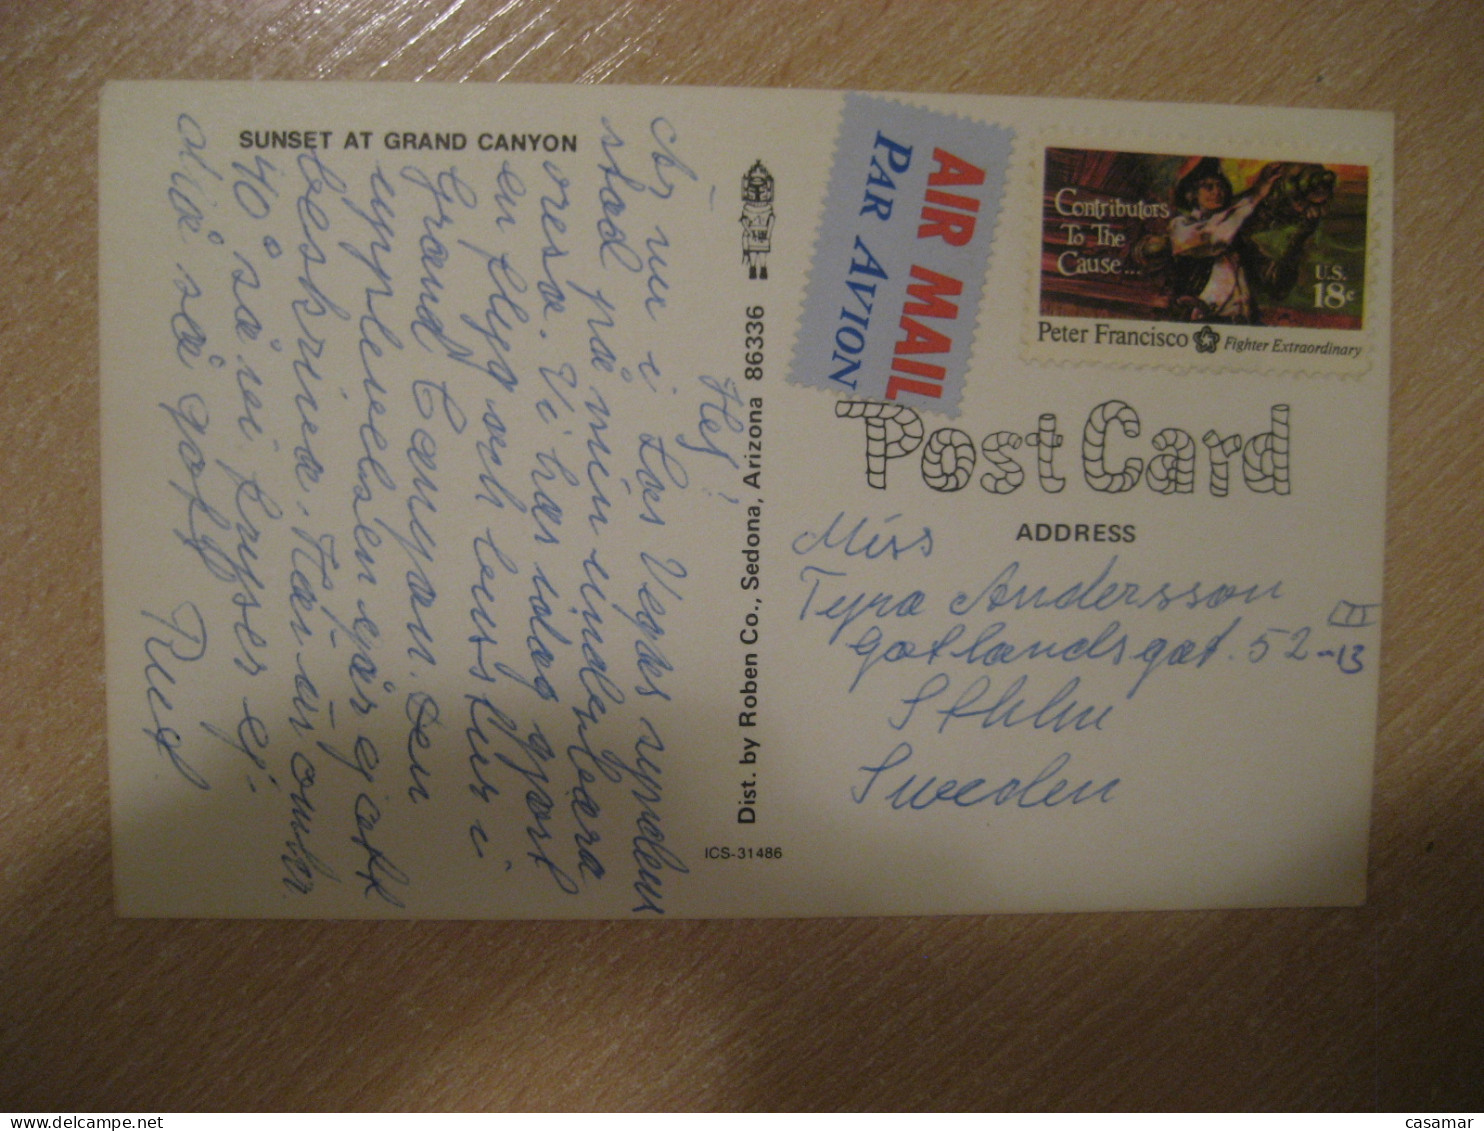 SUNSET AT GRAND CANYON
Hej!
Är nu i Las Vegas syndens
stad på min underbara
resa. Vi har idag gjort
en flyg och busstur i
Grand Canyon. Den
upplevelsen går ej att
beskriva. Här är omkr.
40° så vi fryser ej.
alså så gott
Rut
Dist. by Roben Co., Sedona, Arizona 86336
ICS-31486
AIR MAIL
PAR AVION
Contributors
To The
Cause...
U.S.
18c
Peter Francisco
Fighter Extraordinary
PostCard
ADDRESS
Miss
Tyra Andersson
Gotlandsgat. 52-13
III
Sthlm
Sweden
casamar